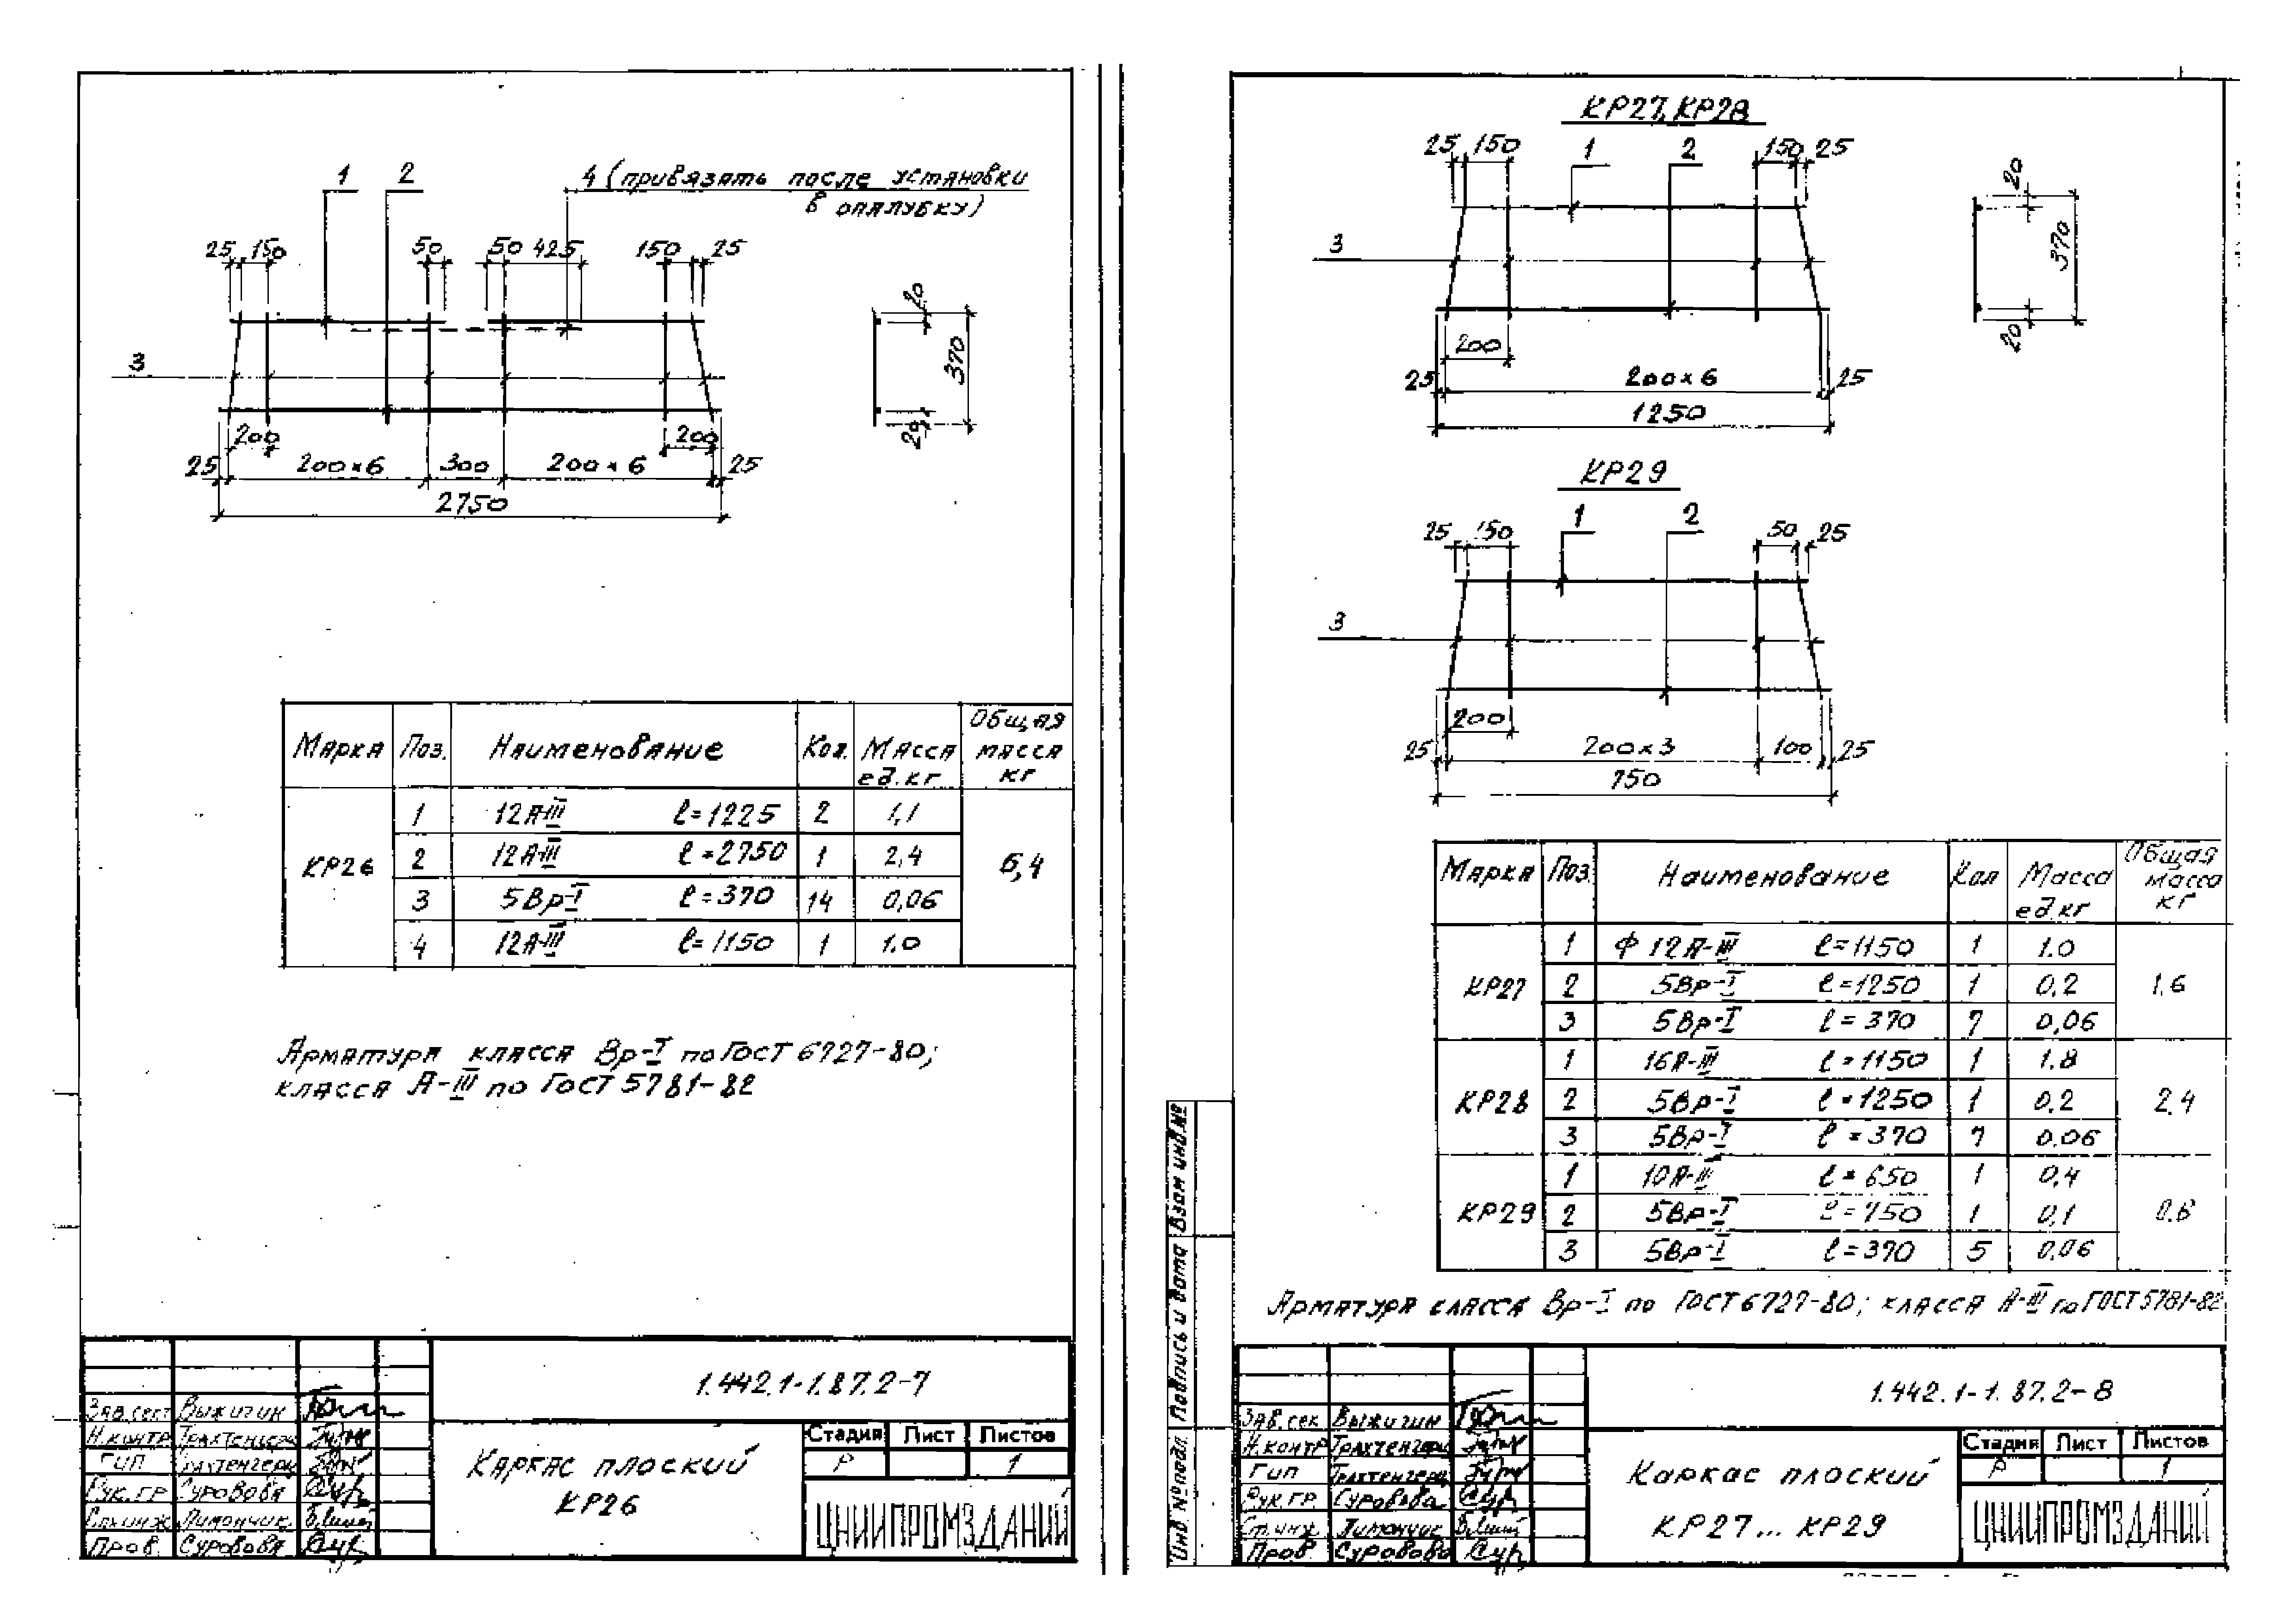 1 2 4 (привязать после установки
в опалубку)
25 150 50 50 425 150 25
20
370
20
3
200 200
25 200×6 300 200×6 25
2750
Марка Поз. Наименование Кол. Масса ед. кг Общая масса кг
КР26 6,4
1 12А-III ℓ=1225 2 1,1
2 12А-III ℓ=2750 1 2,4
3 5Вр-I ℓ=370 14 0,06
4 12А-III ℓ=1150 1 1.0
Арматура класса Вр-I по ГОСТ 6727-80;
класса А-III по ГОСТ 5781-82
1.442.1-1.87.2-7
Зав.сект. Выжигин
Н.контр Трахтенгерц
ГИП Трахтенгерц
Рук.гр Суровова
Ст.инж Лимончик
Пров. Суровова
Каркас плоский
КР26
Стадия Лист Листов
Р 1
ЦНИИПРОМЗДАНИЙ
КР27, КР28
25 150 1 2 150 25
20
370
20
3
200
25 200×6 25
1250
КР29
25 150 1 2 50 25
3
200
25 200×3 100 25
750
Марка Поз. Наименование Кол Масса ед.кг Общая масса кг
КР27 1.6
1 Ф 12А-III ℓ=1150 1 1.0
2 5Вр-I ℓ=1250 1 0,2
3 5Вр-I ℓ=370 7 0,06
КР28 2,4
1 16А-III ℓ=1150 1 1.8
2 5Вр-I ℓ=1250 1 0,2
3 5Вр-I ℓ=370 7 0.06
КР29
1 10А-III ℓ=650 1 0,4
2 5Вр-I ℓ=750 1 0,1
3 5Вр-I ℓ=370 5 0,06
Арматура класса Вр-I по ГОСТ 6727-80; класса А-III по ГОСТ 5781-82
Взам инв.№
Подпись и дата
Инв.№ подл.
1.442.1-1.87.2-8
Зав.сек Выжигин
Н.контр Трахтенгерц
ГИП Трахтенгерц
Рук.гр. Суровова
Ст.инж Лимончик
Пров. Суровова
Каркас плоский
КР27... КР29
Стадия Лист Листов
Р 1
ЦНИИПРОМЗДАНИЙ